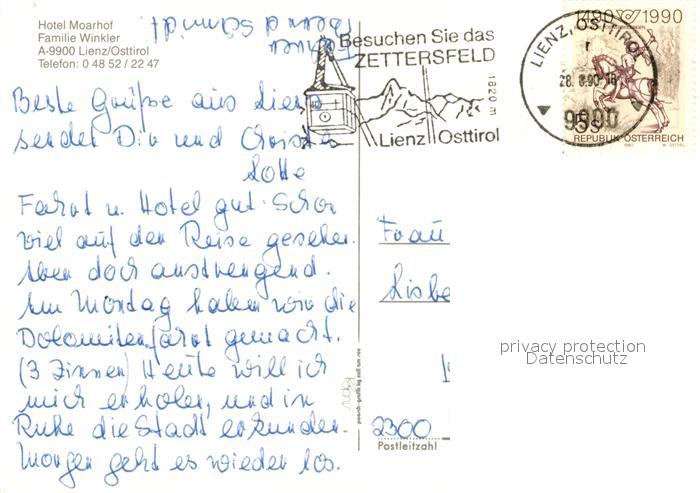 Hotel Moarhof
Familie Winkler
A-9900 Lienz/Osttirol
Telefon: 0 48 52 / 22 47
Besuchen Sie das
ZETTERSFELD
1820 m
Lienz Osttirol
LIENZ, OSTTIROL
28.8.90-18
9900
1490 1990
5S
REPUBLIK ÖSTERREICH
Beste Grüße aus Lienz
sendet Dir und
Lotte
Fahrt u. Hotel gut. Schon
viel auf der Reise gesehen.
Aber doch anstrengend.
Am Montag haben wir die
Dolomitenfahrt gemacht.
(3 Zinnen) Heute will ich
mich erholen, und in
Ruhe die Stadt erkunden.
Morgen geht es wieder los.
Frau
Lisbe
2300
Postleitzahl
privacy protection
Datenschutz